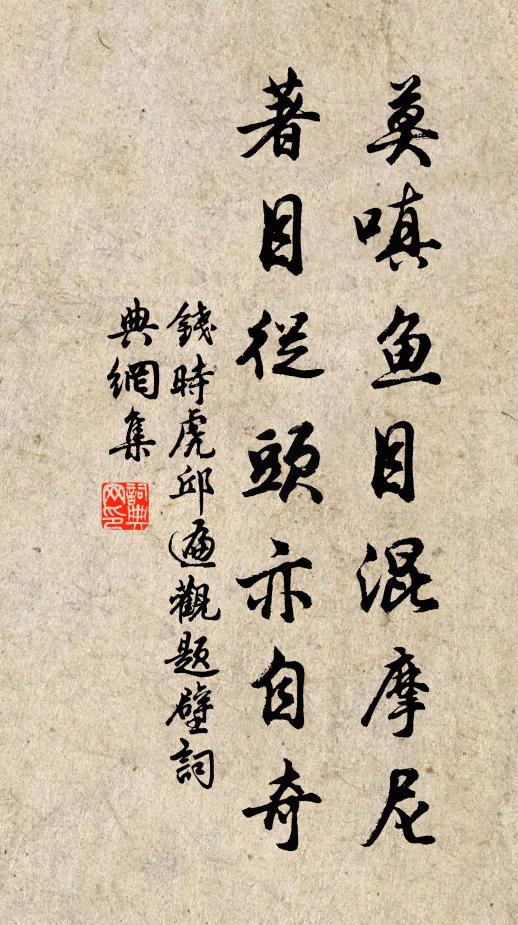 莫嗔鱼目混摩尼
著目從頭亦自奇
錢時虎邱遍觀題壁詞
典網集
詞典网印